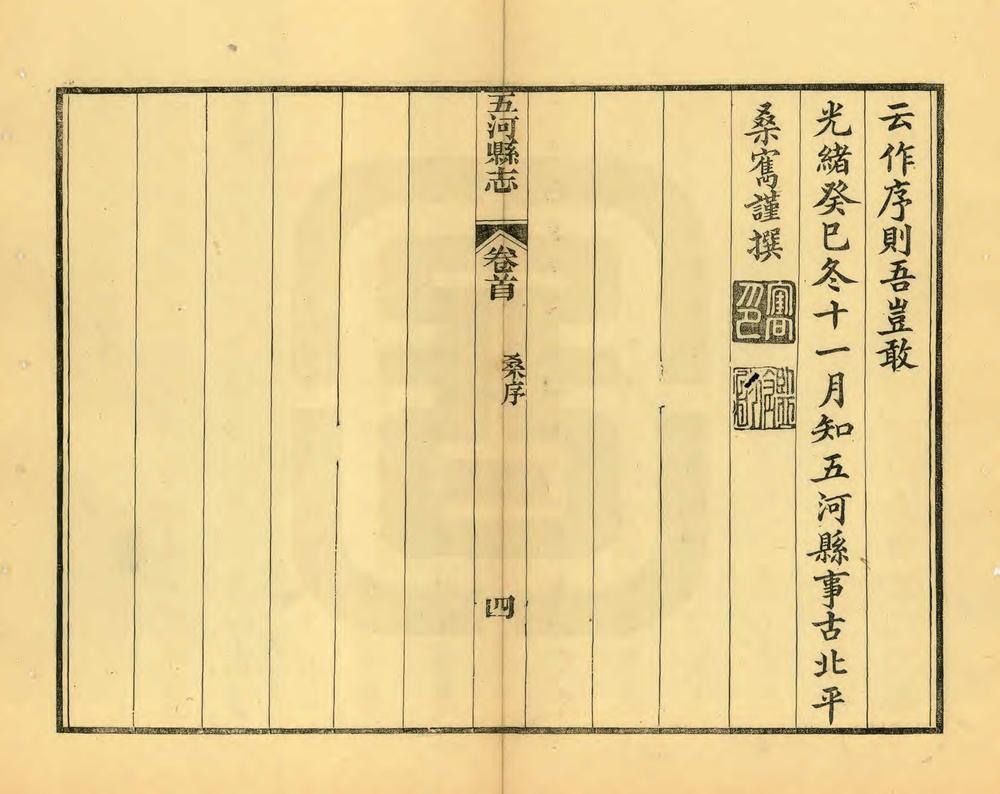 云作序則吾豈敢
光緒癸巳冬十一月知五河縣事古北平
桑寯謹撰
五河縣志
卷首
桑序
四